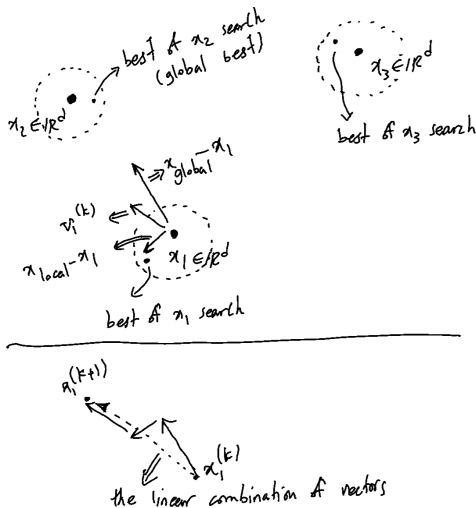 best of x₂ search
(global best)
x₂ ∈ ℝᵈ
x₃ ∈ ℝᵈ
best of x₃ search
x_global − x₁
v₁^(k)
x_local − x₁
x₁ ∈ ℝᵈ
best of x₁ search
x₁^(k+1)
x₁^(k)
the linear combination of vectors